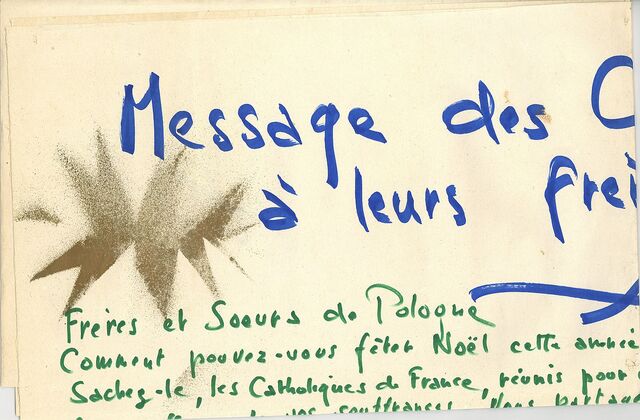 Message des C
à leurs frè
Frères et Soeurs de Pologne
Comment pouvez-vous fêter Noël cette année
Sachez-le, les Catholiques de France, réunis pour
souffrances. Nous partag